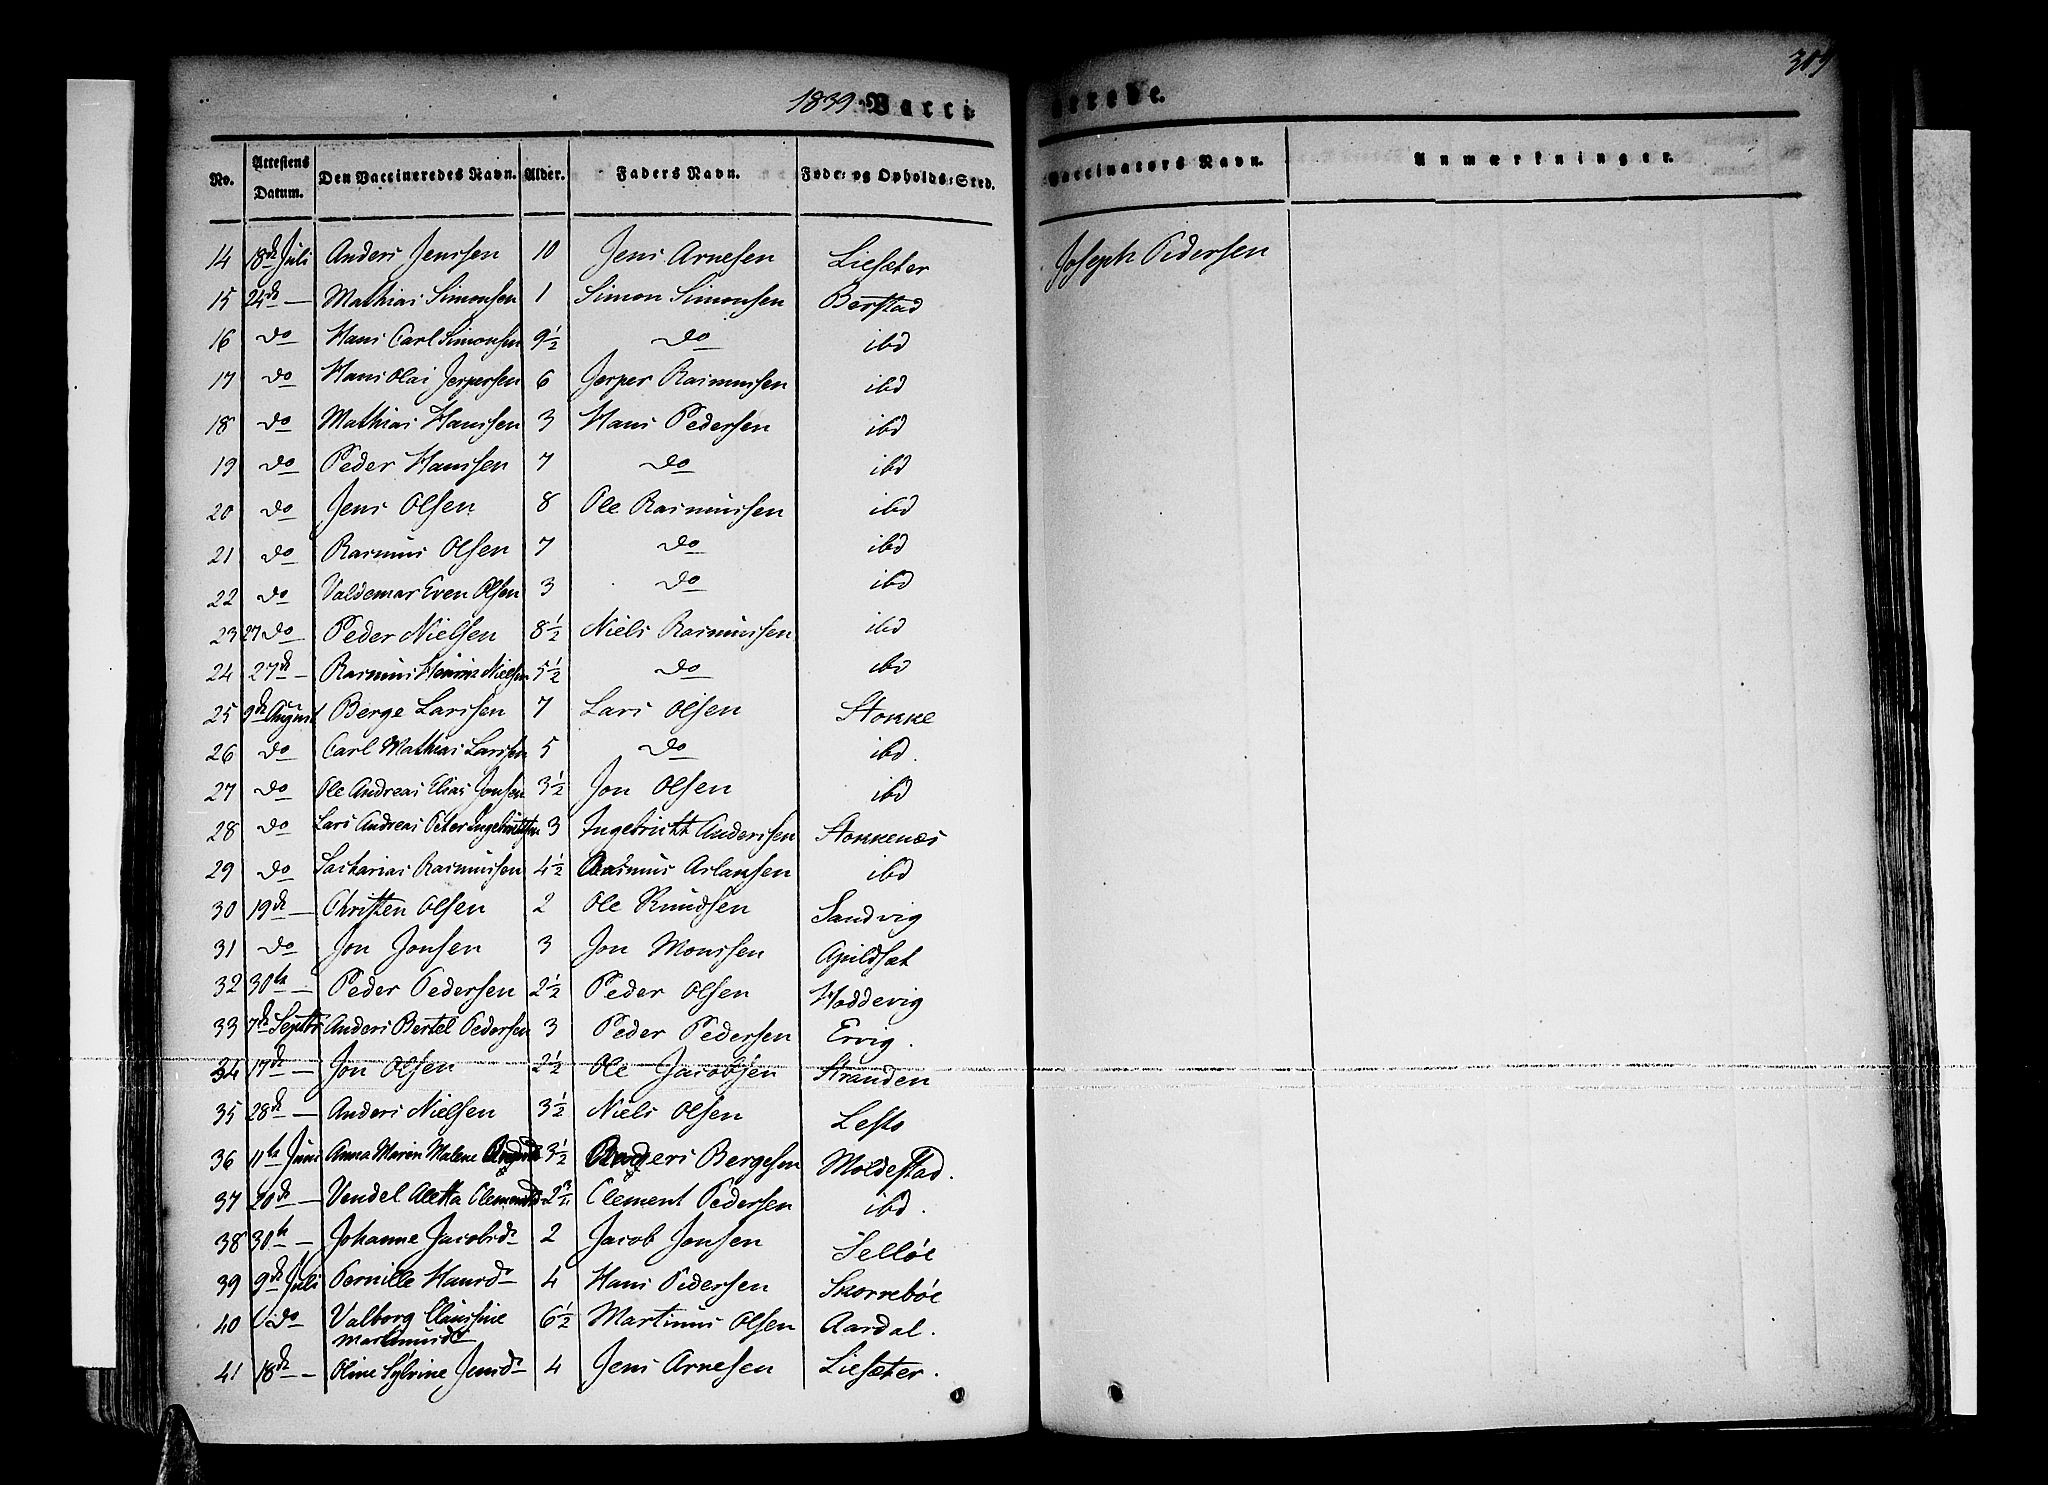 309
1839 Vacci- nerede.
No. Attestens Datum. Den Vaccineredes Navn. Alder. Faders Navn. Føde- og Opholds-Sted. Vaccinators Navn. Anmærkninger.
14 18de Juli Anders Jenssen 10 Jens Arnesen Liesæter Joseph Pedersen
15 24de — Mathias Simonsen 1 Simon Simonsen Berstad
16 do Hans Carl Simonsen 9½ do ibd
17 do Hans Olai Jespersen 6 Jesper Rasmussen ibd
18 do Mathias Hanssen 3 Hans Pedersen ibd
19 do Peder Hanssen 7 do ibd
20 do Jens Olsen 8 Ole Rasmussen ibd
21 do Rasmus Olsen 7 do ibd
22 do Valdemar Even Olsen 3 do ibd
23 27 do Peder Nielsen 8½ Niels Rasmussen ibd
24 27de — Rasmus Nielsen 5½ do ibd
25 9de August Berge Larssen 7 Lars Olsen Stokke
26 do Carl Mathias Larssen 5 do ibd.
27 do Ole Andreas Elias Jonsen 3½ Jon Olsen ibd
28 do Lars Andreas Peter Ingebrichtsen 3 Ingebricht Anderssen Stokkenæs
29 do Zacharias Rasmussen 4½ Rasmus Aslaksen ibd
30 19de — Christen Olsen 2 Ole Knudsen Sandvig
31 do Jon Jonsen 3 Jon Monssen Apildsæt
32 30te — Peder Pedersen 2½ Peder Olsen Hoddevig
33 7de Septbr Anders Bertel Pedersen 3 Peder Pedersen Ervig.
34 17de — Jon Olsen 2½ Ole Jacobsen Stranden
35 28de — Anders Nielsen 3½ Niels Olsen Lesto
36 11te Juni Anna Marin Malene 3½ Anders Bergesen Moldestad.
37 20de — Vendel Aletta Clementsd. Clement Pedersen ibd.
38 30te — Johanne Jacobsdr 2 Jacob Jonsen Selløe
39 9de Juli Pernille Hansdr 4 Hans Pedersen Skorrebøe
40 do Valborg Claussine Martinusdr 6½ Martinus Olsen Aardal.
41 18de — Oline Sylvine Jensdr 4 Jens Arnesen Liesæter.